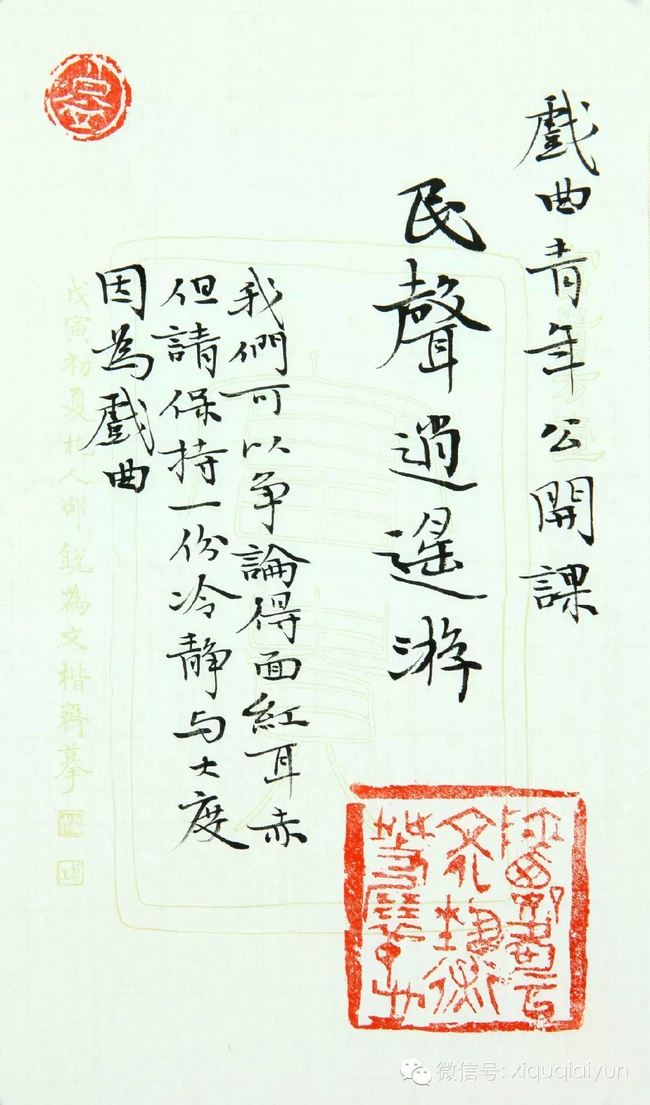 戲曲青年公開課
民聲逍遙游
我們可以争論得面紅耳赤
但請保持一份冷靜与大度
因為戲曲
戊寅初夏 人邵銳為文楷齋摹
微信号: xiquqiaiyun